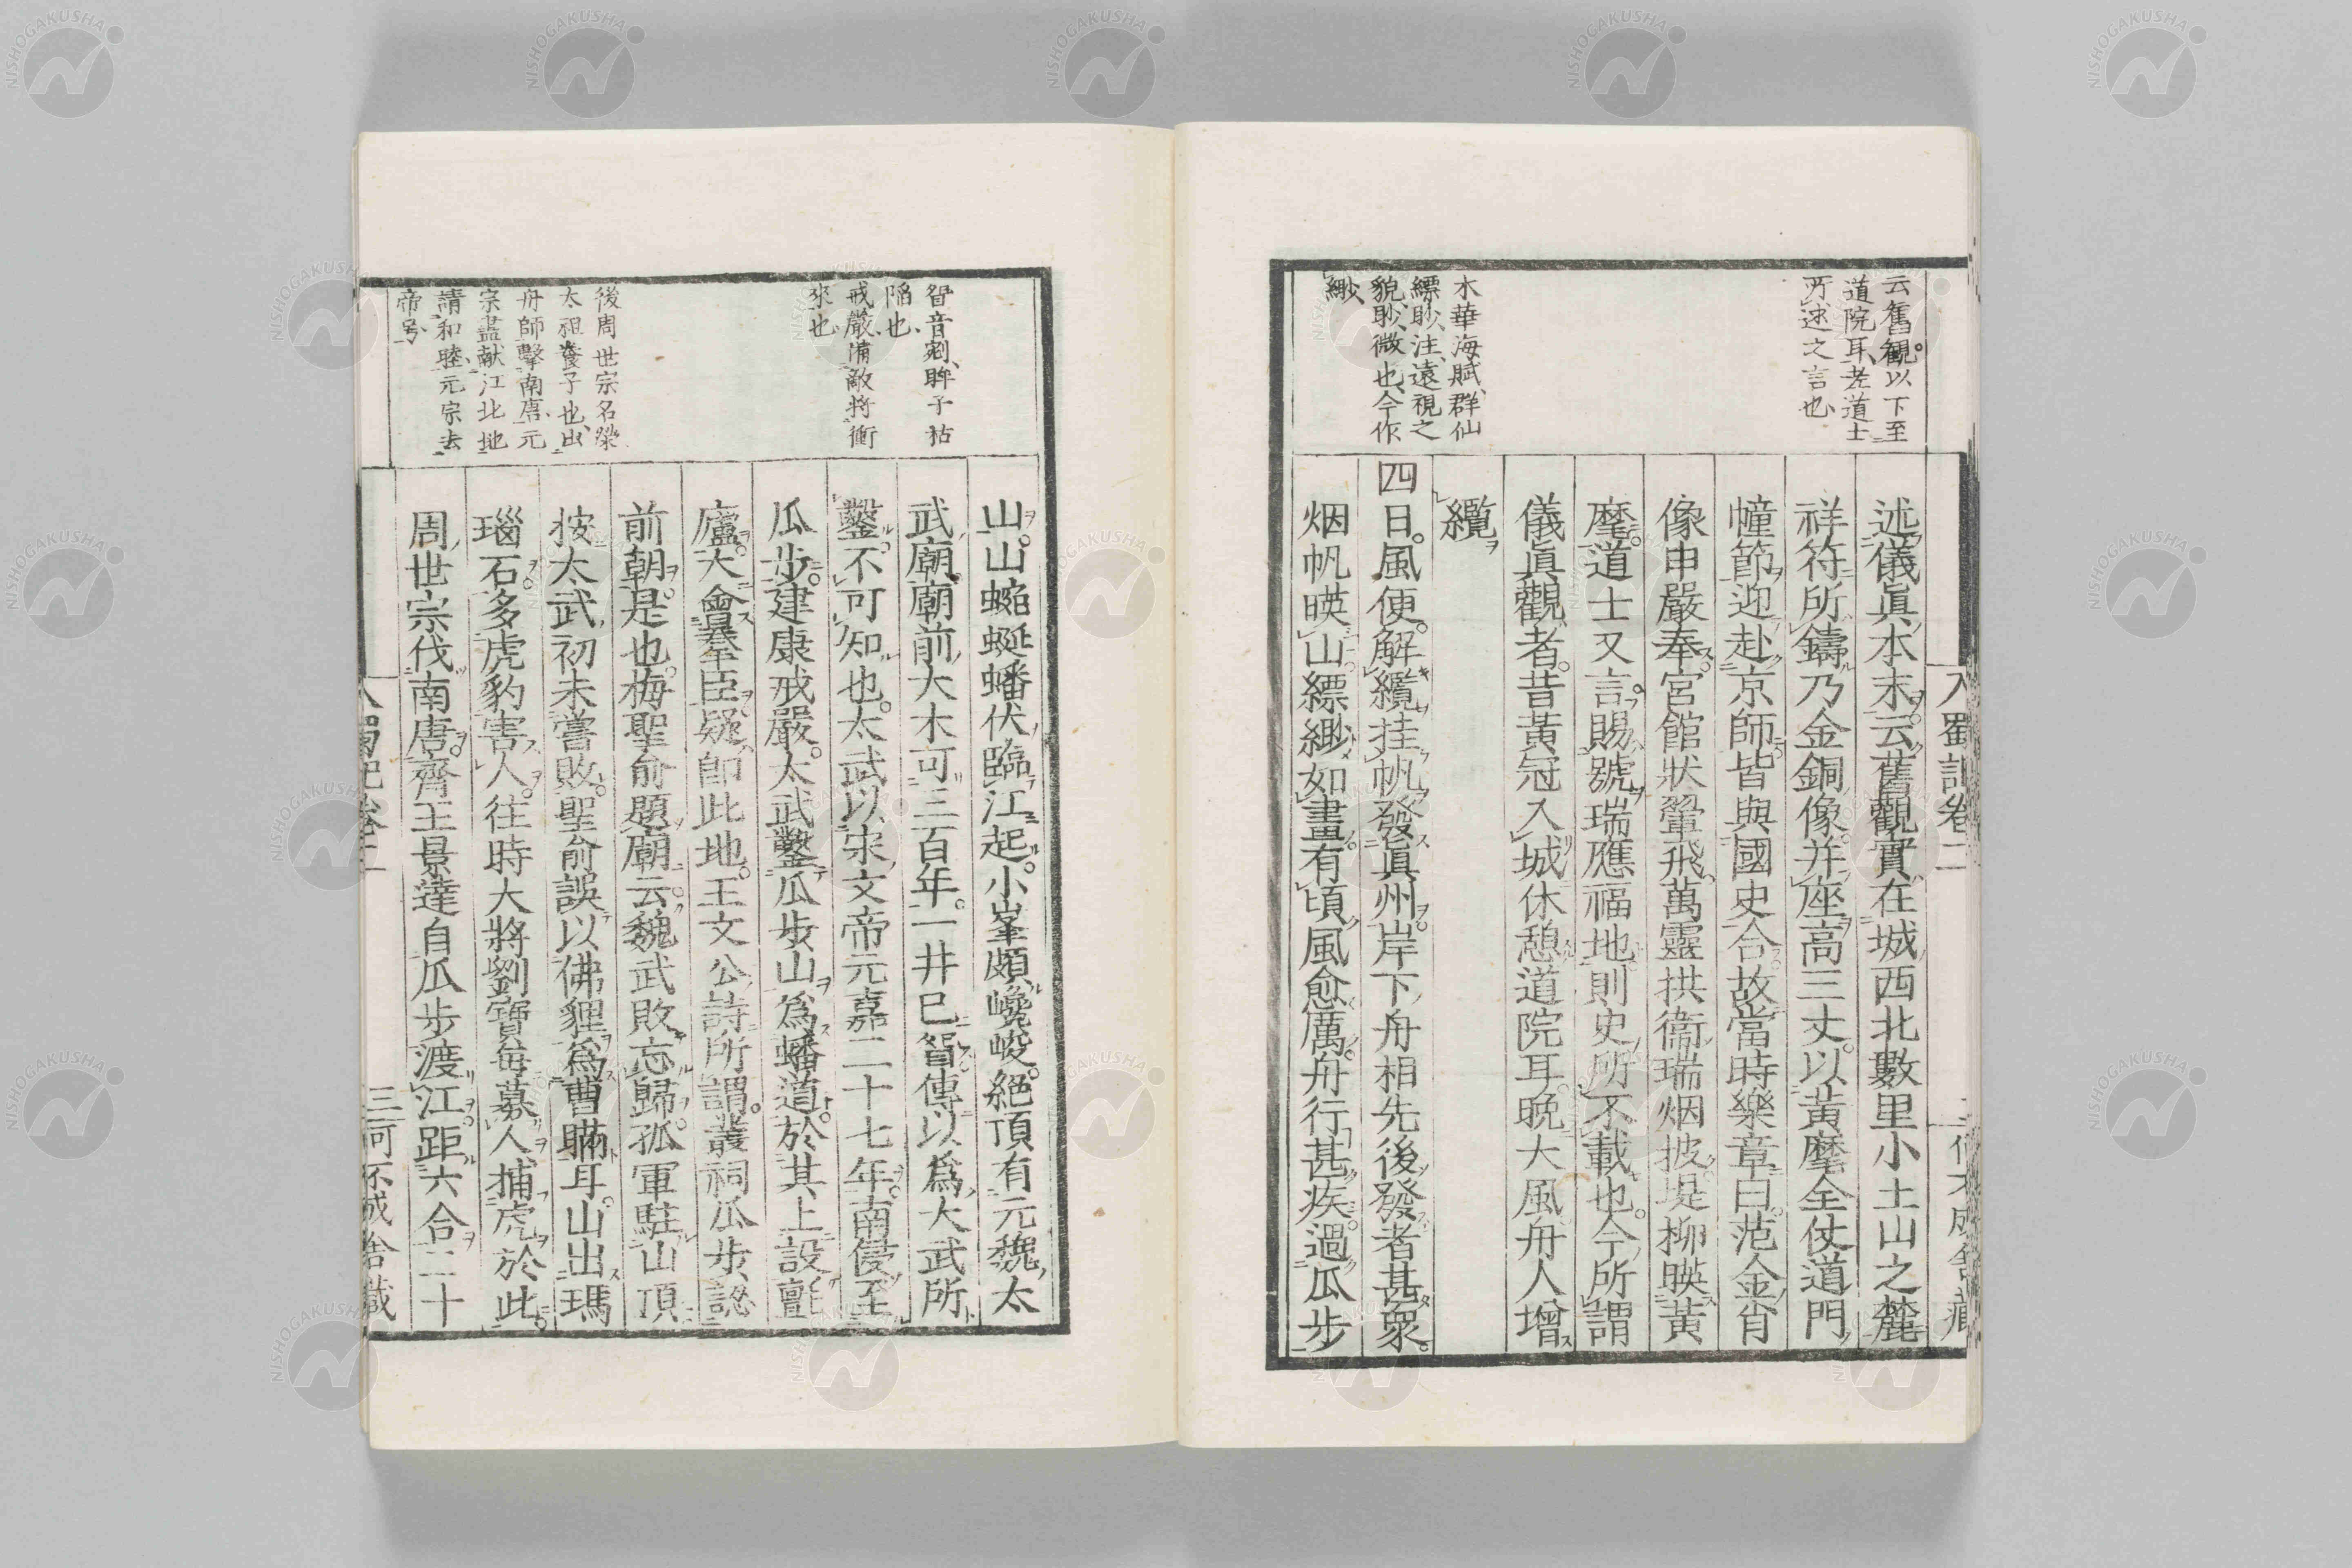 入蜀記卷二
云舊觀。以下至
道院耳、老道士
所述之言也、
木華海賦、群仙
縹眇、注、遠視之
貌、眇、微也、今作
緲、
述儀眞本末。云舊觀實在城西北數里小土山之麓
祥符所鑄乃金銅像。并座高三丈。以黃麾全仗道門
幢節迎赴京師。皆與國史合。故當時樂章曰。范金肖
像申嚴奉。宮館狀翬飛。萬靈拱衞瑞烟披。堤柳暎黃
麾。道士又言。賜號瑞應福地。則史所不載也。今所謂
儀眞觀者。昔黃冠入城休憩道院耳。晩大風。舟人增
纜
四日。風便。解纜挂帆發眞州。岸下舟相先後發者甚衆。
烟帆暎山。縹緲如畫。有頃風愈厲。舟行甚疾。過瓜步
眢音剜、眸子枯
陷也、
戒嚴、備敵將衝
來也、
後周世宗名榮
太祖養子也、出
舟師擊南唐、元
宗盡献江北地
請和睦、元宗去
帝号、
山。山蜿蜒蟠伏臨江起。小峯頗巉峻。絕頂有元魏太
武廟。廟前大木可三百年。一井已眢。傳以爲大武所
鑿。不可知也。太武以宋文帝元嘉二十七年。南侵至
瓜步。建康戒嚴。太武鑿瓜步山爲蟠道。於其上設氈
廬。大會羣臣。疑即此地。王文公詩所謂。叢祠瓜步認
前朝。是也。梅聖俞題廟云。魏武敗忘歸。孤軍駐山頂
按太武初未嘗敗。聖俞誤以佛貍爲曹瞞耳。山出瑪
瑙石。多虎豹害人。往時大將劉寶每募人捕虎於此。
周世宗伐南唐。齊王景達自瓜步渡江。距六合二十